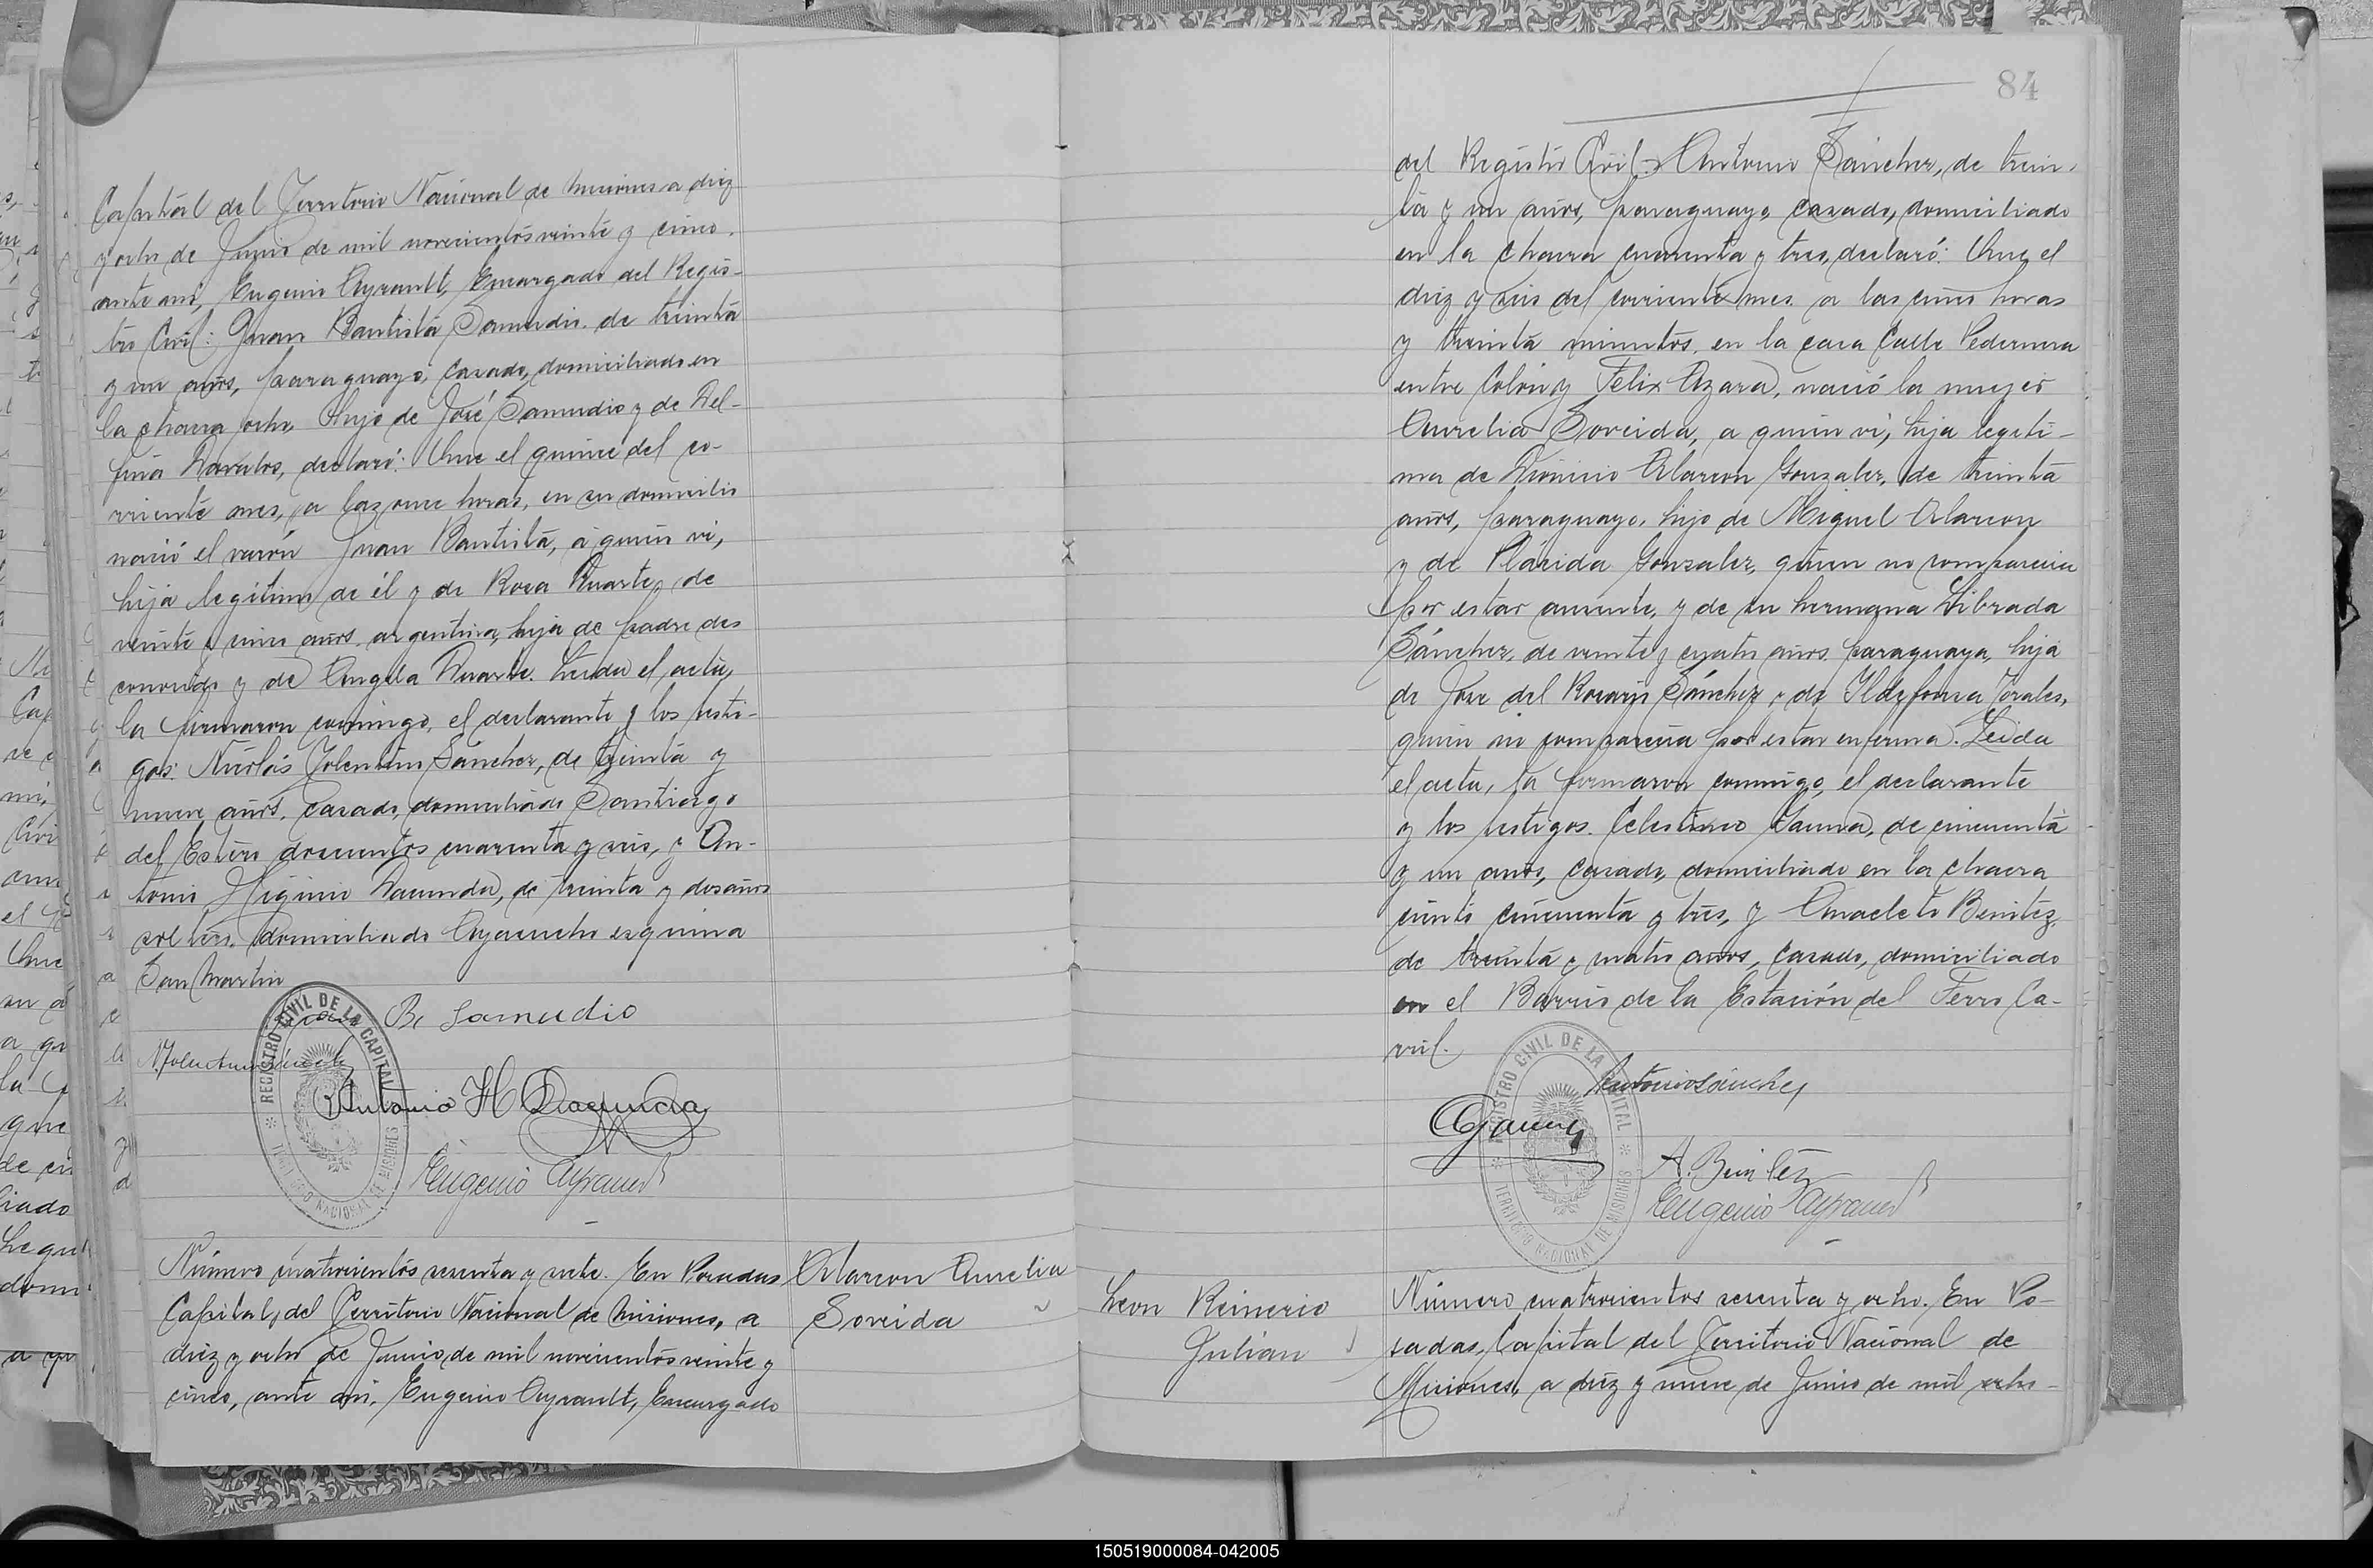 Capital del Territorio Nacional de Misiones a diez
y ocho de Junio de mil novecientos veinte y cinco.
ante mi, Eugenio Ayrault, Encargado del Regis-
tro Civil: Juan Bautista Samudio de treinta
y un años, paraguayo, casado, domiciliado en
la chacra ocho. Hijo de José Samudio y de Del-
fina Davalos, declaró: Que el quince del co-
rriente mes, a las once horas, en su domicilio
nació el varón Juan Bautista, a quien vi,
hijo legitimo de él y de Rosa Duarte, de
veinte y cinco años argentina, hija de padre des
conocido y de Angela Duarte. Leida el acta,
la firmaron conmigo, el declarante y los testi-
gos: Nicolás Tolentino Sánchez, de treinta y
nueve años, casado, domiciliado Santiago
del Estero doscientos cuarenta y seis, y An-
tonio Higinio Dacunda, de treinta y dos años
soltero, domiciliado Ayacucho esquina
San Martin
B. Samudio
Antonio H Dacunda
Eugenio Ayrault
REGISTRO CIVIL DE LA CAPITAL
TERRITORIO NACIONAL DE MISIONES
Número cuatrocientos sesenta y siete. En Posadas
Capital, del Territorio Nacional de Misiones, a
diez y ocho de Junio de mil novecientos veinte y
cinco, ante mi, Eugenio Ayrault, Encargado
Alarcon Aurelia
Soreida
84
del Registro Civil: Antonio Sánchez, de trein-
ta y un años, paraguayo, casado, domiciliado
en la chacra cuarenta y tres, declaró: Que el
diez y seis del corriente mes a las cinco horas
y treinta minutos, en la casa Calle Pedernera
entre Colón y Felix Azara, nació la mujer
Aurelia Soreida, a quien vi, hija legiti-
ma de Dionicio Alarcon Gonzalez, de treinta
años, paraguayo, hijo de Miguel Alarcon
y de Plácida Gonzalez, quien no comparecia
por estar ausente, y de su hermana Librada
Sánchez, de veinte y cuatro años paraguaya, hija
de Jose del Rosario Sánchez y de Ildefonsa Torales,
quien no comparecia por estar enferma. Leida
el acta, la firmaron conmigo, el declarante
y los testigos. Celestino Gauna, de cincuenta
y un años, casado, domiciliado en la chacra
ciento cincuenta y tres, y Anacleto Benitez,
de treinta y cuatro años, casado, domiciliado
en el Barrio de la Estación del Ferro Ca-
rril.
Antonio Sánchez
CGauna
A. Benítez
Eugenio Ayrault
REGISTRO CIVIL DE LA CAPITAL
TERRITORIO NACIONAL DE MISIONES
Leon Reinerio
Julián
Número cuatrocientos sesenta y ocho. En Po-
sadas, Capital del Territorio Nacional de
Misiones, a diez y nueve de Junio de mil ocho-
150519000084-042005